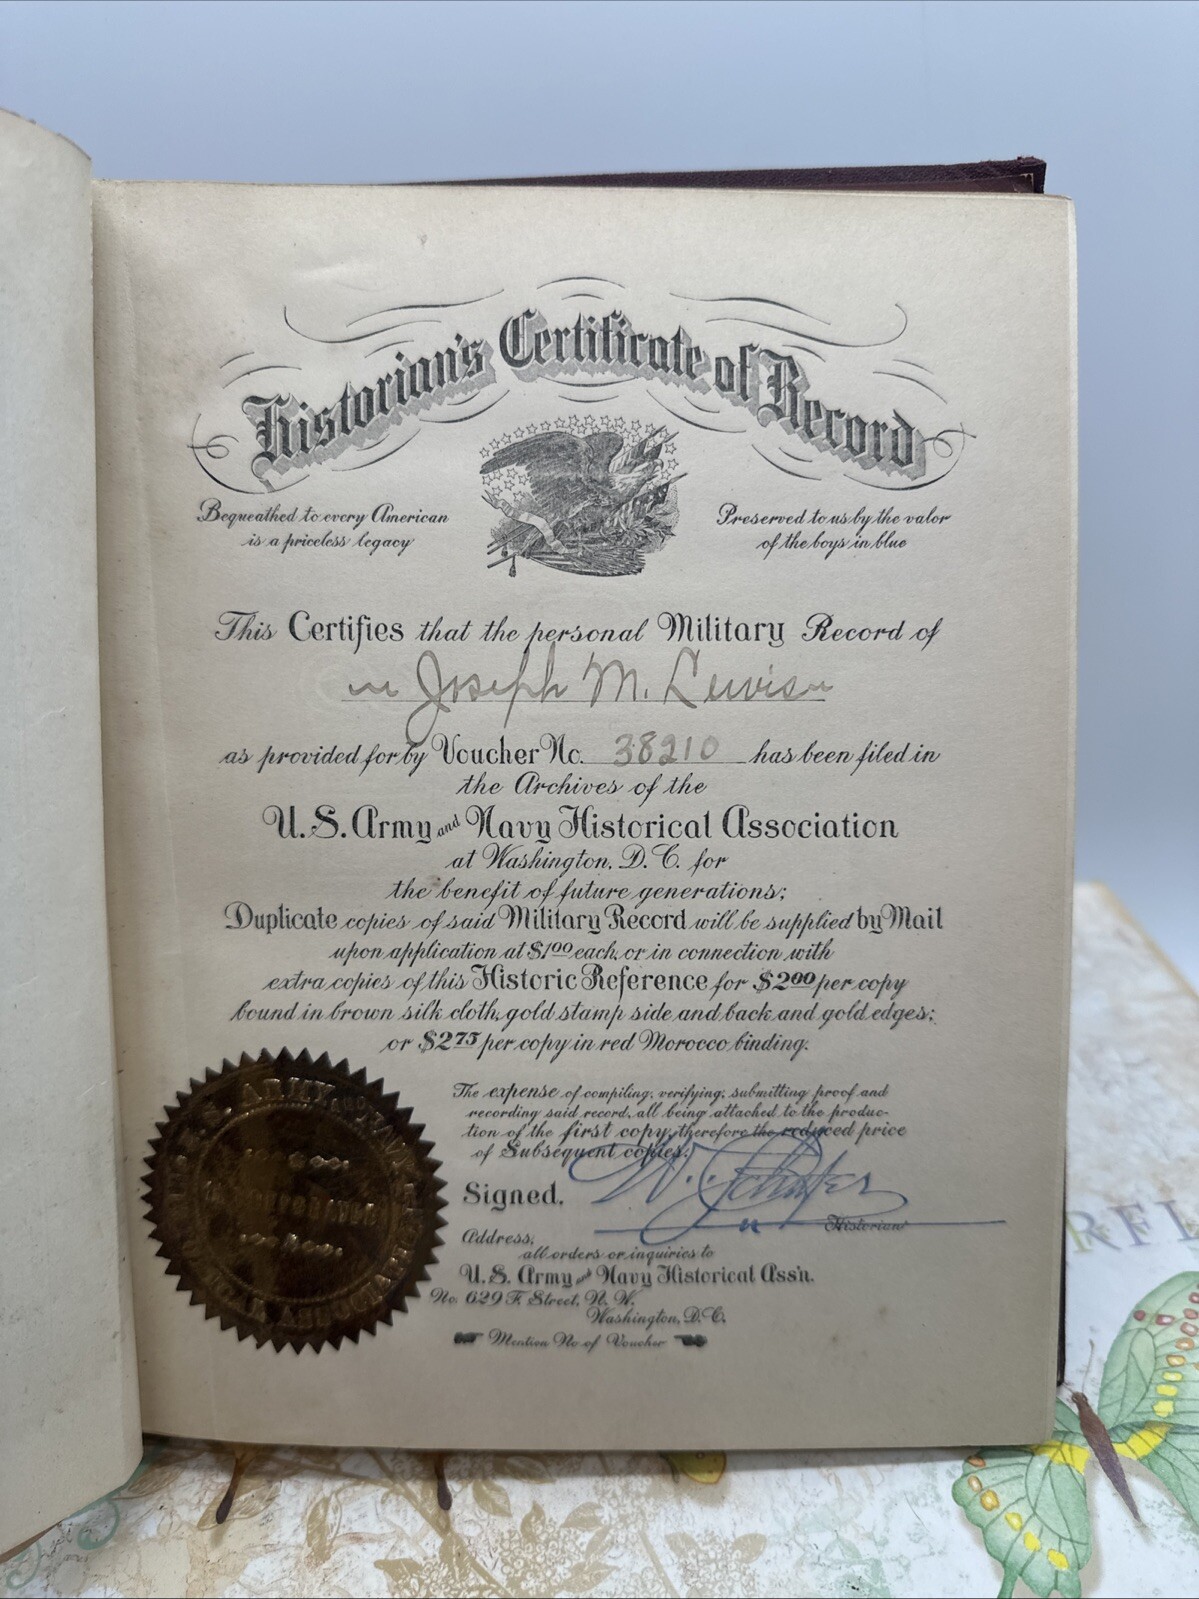 Historian's Certificate of Record
Bequeathed to every American
is a priceless legacy
Preserved to us by the valor
of the boys in blue
This Certifies that the personal Military Record of
Joseph M. Lewis
as provided for by Voucher No. 38210 has been filed in
the Archives of the
U.S. Army and Navy Historical Association
at Washington, D.C. for
the benefit of future generations;
Duplicate copies of said Military Record will be supplied by Mail
upon application at $1.00 each, or in connection with
extra copies of this Historic Reference for $2.00 per copy
bound in brown silk cloth, gold stamp side and back and gold edges;
or $2.75 per copy in red Morocco binding.
The expense of compiling, verifying, submitting proof and
recording said record, all being attached to the produc-
tion of the first copy, therefore the reduced price
of Subsequent copies.
Signed.
Historian
Address,
all orders or inquiries to
U.S. Army and Navy Historical Ass'n.
No. 629 F. Street, N.W.
Washington, D.C.
Mention No of Voucher
ARMY AND NAVY
RFL